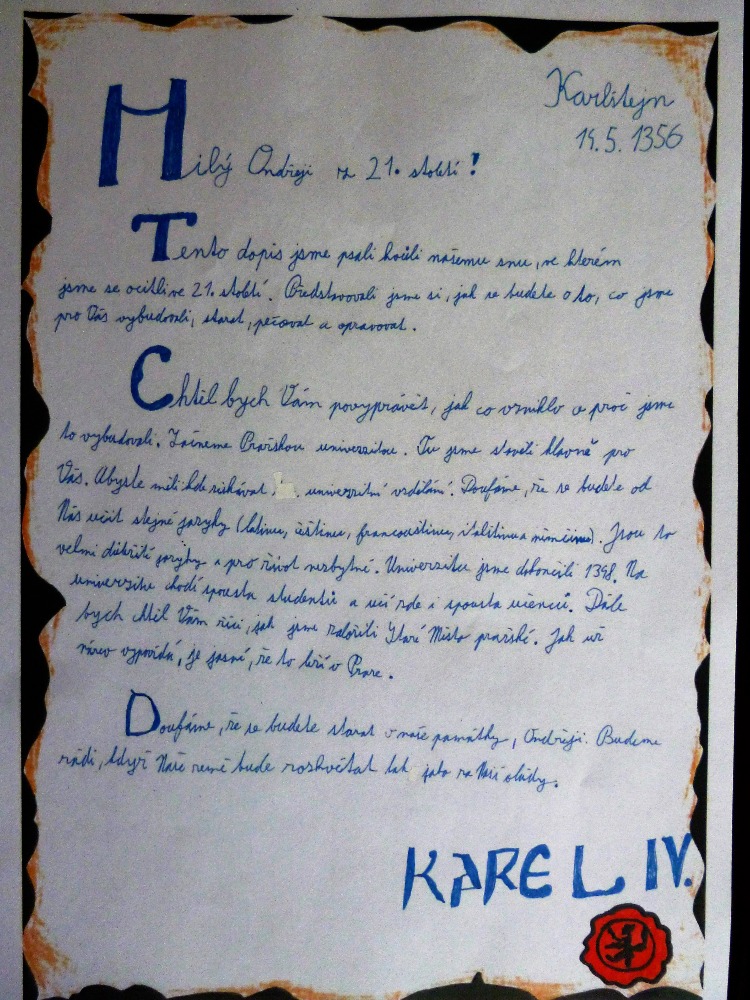 Karlštejn
14.5.1356
Milý Ondřeji z 21. století!
Tento dopis jsme psali kvůli našemu snu, ve kterém
jsme se ocitli ve 21. století. Představovali jsme si, jak se budete o to, co jsme
pro Vás vybudovali, starat, pečovat a opravovat.
Chtěl bych Vám povyprávět, jak co vzniklo a proč jsme
to vybudovali. Začneme Pražskou univerzitou. Tu jsme stavěli hlavně pro
Vás. Abyste měli kde získávat univerzitní vzdělání. Doufáme, že se budete od
Nás učit stejné jazyky (latinu, češtinu, francouštinu, italštinu a němčinu). Jsou to
velmi důležité jazyky a pro život nezbytné. Univerzitu jsme dokončili 1348. Na
univerzitu chodí spousta studentů a učí zde i spousta učenců. Dále
bych chtěl Vám říci, jak jsme založili Staré Město pražské. Jak už
název vypovídá, je jasné, že to leží v Praze.
Doufáme, že se budete starat o naše památky, Ondřeji. Budeme
rádi, když Naše země bude rozkvétat tak jako za Naší vlády.
KAREL IV.